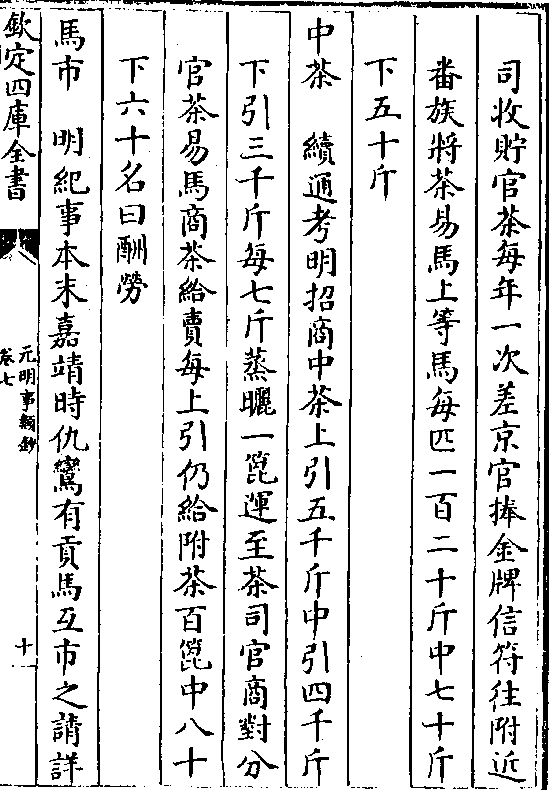 司收貯官茶每年一次差京官捧金牌信符往附近
番族將茶易馬上等馬每匹一百二十斤中七十斤
下五十斤
中茶　續通考明招商中茶上引五千斤中引四千斤
下引三千斤每七斤蒸曬一篦運至茶司官商對分
官茶易馬商茶給賣每上引仍給附茶百篦中八十
下六十名曰酬勞
馬市　明紀事本末嘉靖時仇鸞有貢馬互市之請詳
欽定四庫全書
元明事類鈔
卷七
十一